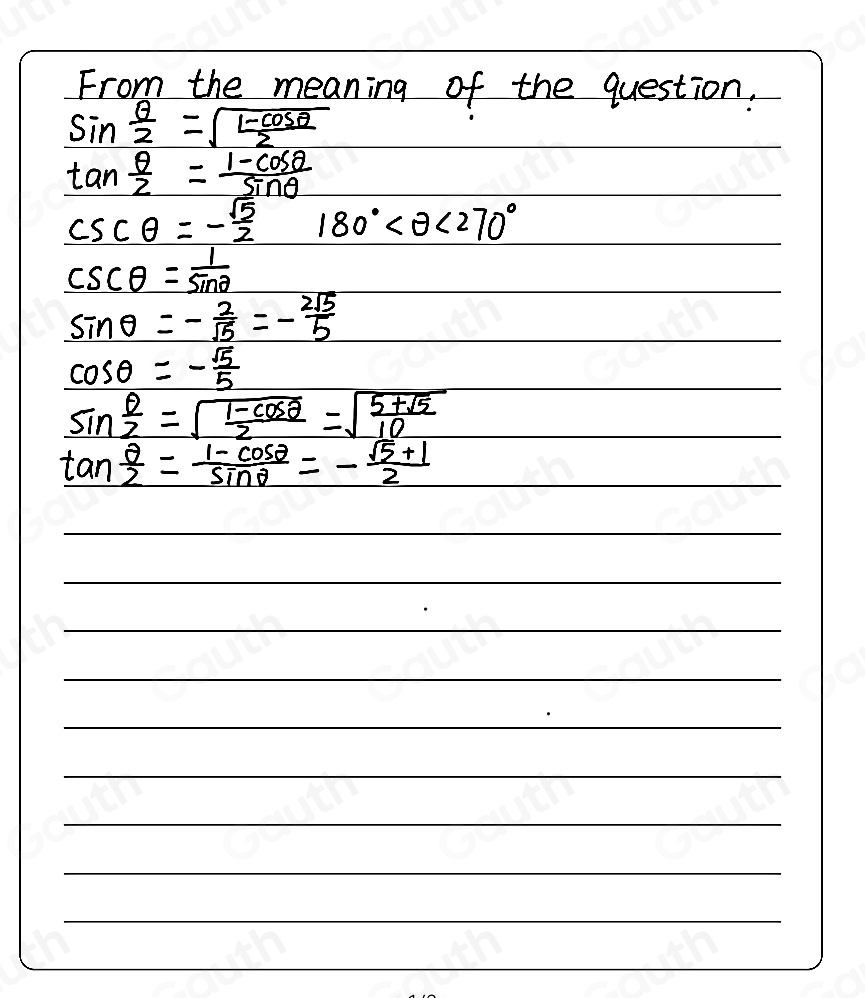 From the meaning of the question.
sin θ/2 = √((1-cosθ)/2)
tan θ/2 = (1-cosθ)/sinθ
cscθ = -√5/2 180° < θ < 270°
cscθ = 1/sinθ
sinθ = -2/√5 = -2√5/5
cosθ = -√5/5
sin θ/2 = √((1-cosθ)/2) = √((5+√5)/10)
tan θ/2 = (1-cosθ)/sinθ = -(√5+1)/2
Gauth